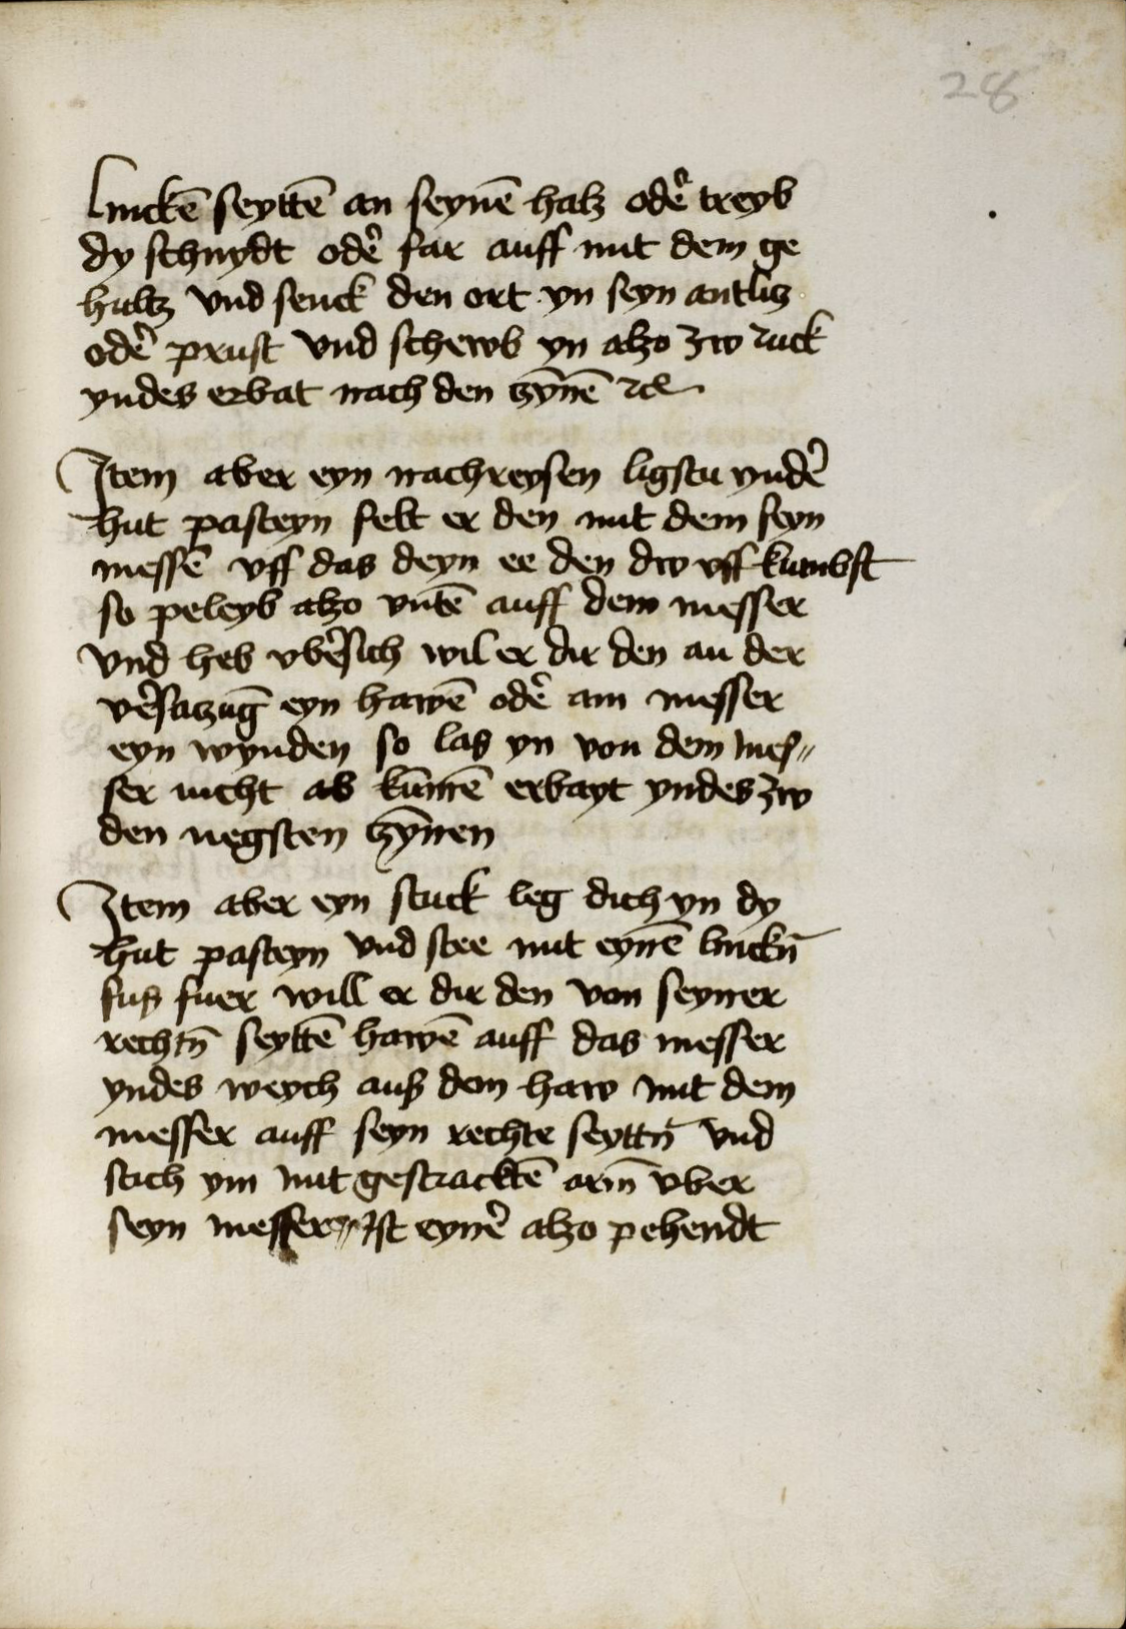 28
linckē seyttē an seynē halz odẽ treyb
dy schnydt odẽ far auff mit dem ge
hultz vnd senck den ort yn seyn antlitz
odẽ prust vnd schewb yn alzo zw ruck
yndes erbat nach den zȳnē ꝛc
Item aber eyn nachreysen ligstu yndẽ
hut pasteyn felt er den mit dem seyn
messē vff das deyn ee den dw vff kumbst
so peleyb alzo vntē auff dem messer
vnd heb vbẽsich wil er dir den an der
vẽsatzūg eyn hawē odẽ am messer
eyn wynden so las yn von dem mes〃
ser nicht ab kūmē erbayt yndes zw
den negsten zȳnen
Item aber eyn stuck leg dich yn dy
hut pasteyn vnd stee mit eynē linckn̄
fuß fuer will er dir den von seyner
rechtn̄ seyttē hawē auff das messer
yndes weych auß dem haw mit dem
messer auff seyn rechte seyttn̄ vnd
stich ym mit gestracktē arm̄ vber
seyn messer〃 Ist eynẽ alzo pehendt